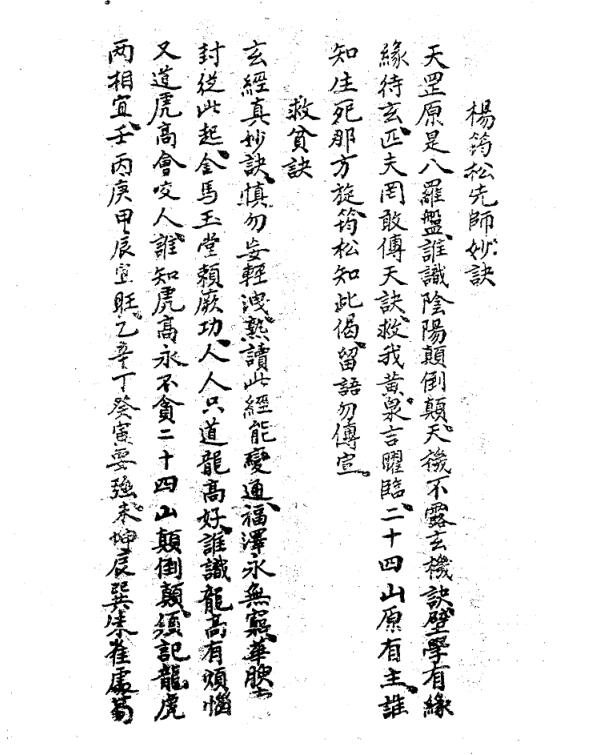 楊筠松先師妙訣
天罡原是八羅盤誰識陰陽顛倒顛天機不露玄機訣壁學有緣
緣待玄匹夫罔敢傳天訣救我黃泉言曜臨二十四山原有主誰
知生死那方旋筠松知此偈留語勿傳宣
救貧訣
玄經真妙訣慎勿妄輕洩熟讀此經能變通福澤永無窮華腴
封從此起金馬玉堂賴厥功人人只道龍高好誰識龍高有煩惱
又道虎高會咬人誰知虎高永不貪二十四山顛倒顛須記龍虎
两相宜壬丙庚甲辰宜旺乙辛丁癸寅要強未坤辰巽朱雀處